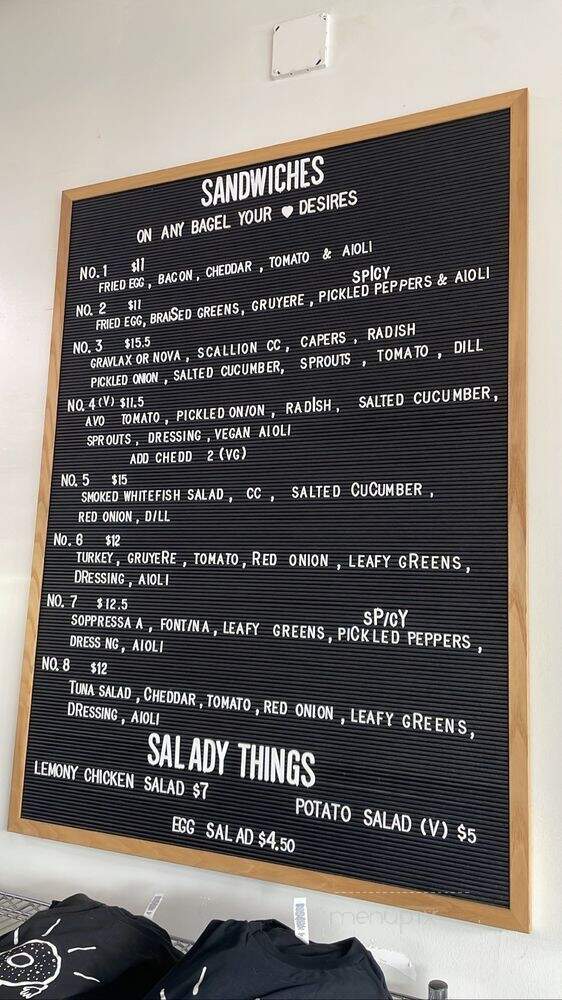 SANDWICHES
ON ANY BAGEL YOUR ♥ DESIRES
NO. 1 $11
FRIED EGG, BACON, CHEDDAR, TOMATO & AIOLI
NO. 2 $11
SPICY
FRIED EGG, BRAISED GREENS, GRUYERE, PICKLED PEPPERS & AIOLI
NO. 3 $15.5
GRAVLAX OR NOVA, SCALLION CC, CAPERS, RADISH
PICKLED ONION, SALTED CUCUMBER, SPROUTS, TOMATO, DILL
NO. 4 (V) $11.5
AVO TOMATO, PICKLED ONION, RADISH, SALTED CUCUMBER,
SPROUTS, DRESSING, VEGAN AIOLI
ADD CHEDD 2 (VG)
NO. 5 $15
SMOKED WHITEFISH SALAD, CC, SALTED CUCUMBER,
RED ONION, DILL
No. 6 $12
TURKEY, GRUYERE, TOMATO, RED ONION, LEAFY GREENS,
DRESSING, AIOLI
NO. 7 $12.5
SPICY
SOPPRESSA A, FONTINA, LEAFY GREENS, PICKLED PEPPERS,
DRESS NG, AIOLI
NO. 8 $12
TUNA SALAD, CHEDDAR, TOMATO, RED ONION, LEAFY GREENS,
DRESSING, AIOLI
SALADY THINGS
LEMONY CHICKEN SALAD $7
POTATO SALAD (V) $5
EGG SALAD $4.50